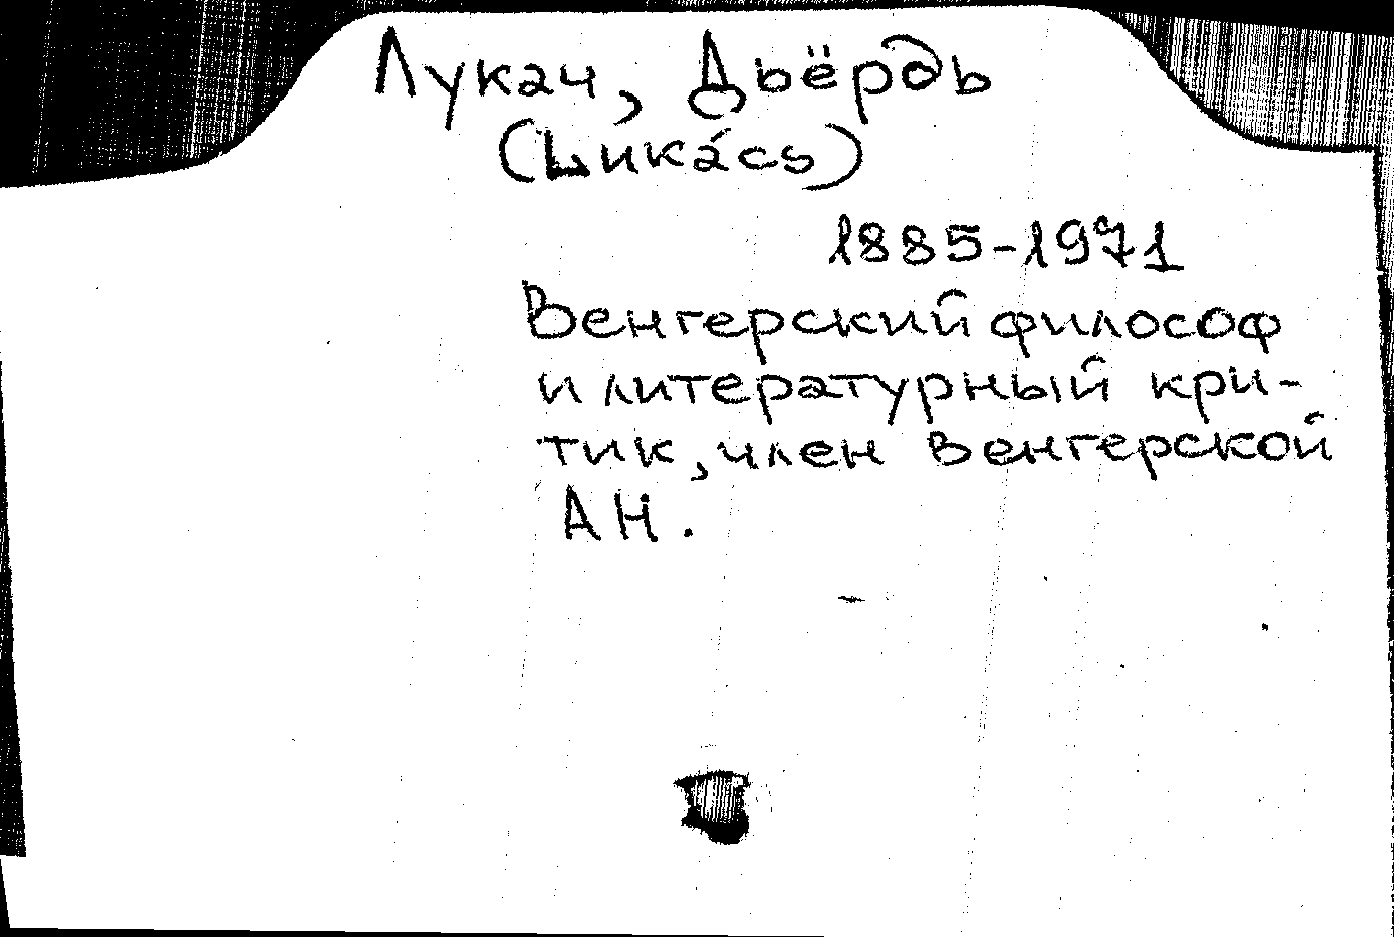 Лукач, Дьёрдь
(Lukács)
1885-1971
Венгерский философ
и литературный кри-
тик, член Венгерской
АН.